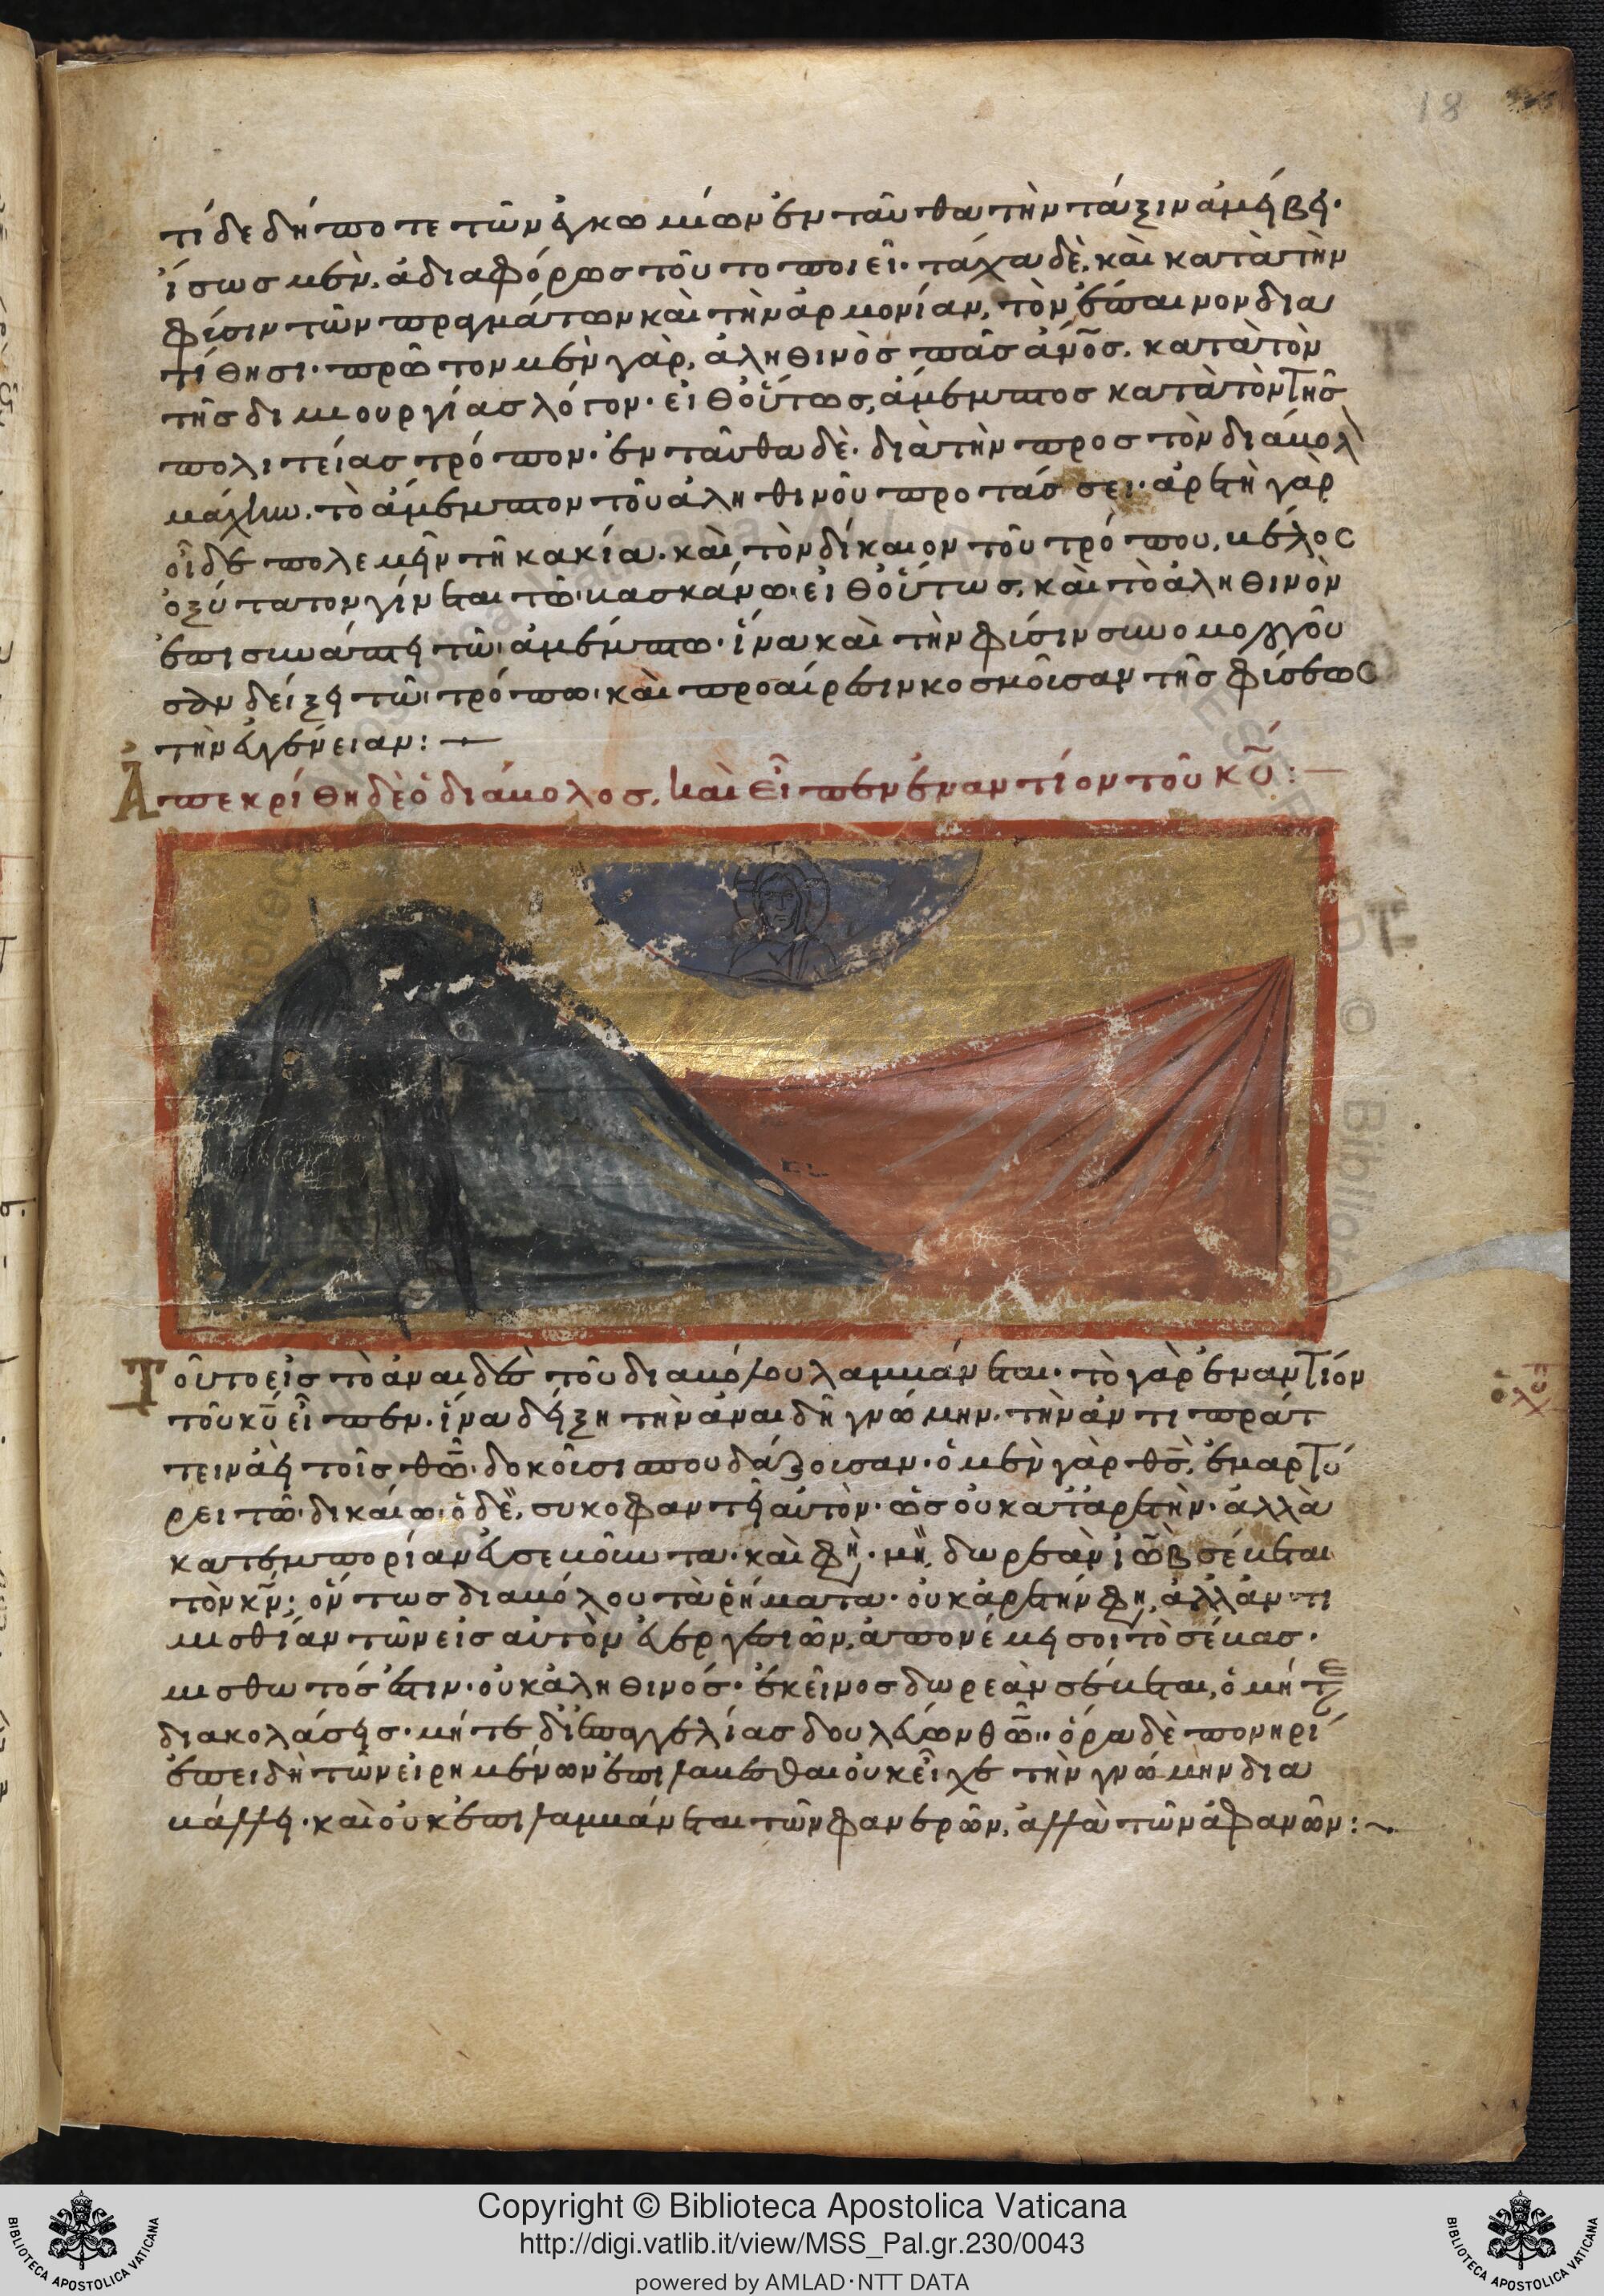 18
τί δε δήποτε τῶν ἐγκωμίων ἐνταῦθα τὴν τάξιν ἀμείβει·
ἴσως μὲν, ἀδιαφόρως τοῦτο ποιεῖ· τάχα δὲ, καὶ κατὰ τὴν
φύσιν τῶν πραγμάτων καὶ τὴν ἁρμονίαν, τὸν ἔπαινον δια
τίθησι· πρῶτον μὲν γὰρ, ἀληθινὸς πᾶς ἄνος, κατὰ τὸν
τῆς διμιουργίας λόγον· εἶθ οὕτως, ἄμεμπτος κατὰ τὸν τῆς
πολιτείας τρόπον· ἐνταῦθα δὲ· διὰ τὴν προς τὸν διάβολ
μάχην· τὸ ἄμεμπτον τοῦ ἀληθινοῦ προτάσσει· ἀρετὴ γὰρ
οἶδε πολεμεῖν τῆ κακία· καὶ τὸν δίκαιον τοῦ τρόπου, βέλος
ὀξύτατον γίνεται τῶ βασκάνω· εἶθ οὕτως, καὶ τὸ ἀληθινὸν
ἐπισυνάπτει τῶ ἀμέμπτω· ἵνα καὶ τὴν φύσιν συνομολογοῦ
σαν δείξη τῶ τρόπω· καὶ προαίρεσιν κοσμοῦσαν τῆς φύσεως
τὴν εὐγένειαν:
Ἀπεκρίθη δὲ ὁ διάβολος, καὶ εἶπεν ἐναντίον τοῦ κυ:
Τοῦτο εἰς τὸ ἀναιδὲς τοῦ διαβόλου λαμβάνεται· τὸ γὰρ ἐναντίον
τοῦ κυ εἶπεν· ἵνα δείξη τὴν ἀναιδῆ γνώμην· τὴν ἀντιπράτ
τειν ἀεὶ τοῖς θω δοκοῦσι σπουδάζουσαν· ὁ μὲν γὰρ θς, ἐμαρτύ
ρει τῶ δικαίω· ὁ δὲ, συκοφαντεῖ αὐτὸν· ὡς οὐ κατ ἀρετὴν· ἀλλὰ
κατ ἐμπορίαν εὐσεβοῦντα· καὶ φη· μὴ δωρεὰν ἰὼβ σέβεται
τὸν κν; ὄντως διαβόλου τὰ ῥήματα· οὐκ ἀρετήν φη, ἀλλ ἀντι
μισθίαν τῶν εἰς αὐτὸν εὐεργεσιῶν, ἀπονέμει σοι τὸ σέβας·
μισθωτός ἐστιν· οὐκ ἀληθινός· ἐκεῖνος δωρεὰν σέβεται, ὁ μήτε
διακολάσεις· μήτε δι ἐπαγγελίας δουλεύων θω· ὅρα δὲ πονηρί
ἐπειδὴ τῶν εἰρημένων ἐπιλαβέσθαι οὐκ εἶχε τὴν γνώμην δια
βάλλει· καὶ οὐκ ἐπιλαμβάνεται τῶν φανερῶν, ἀλλὰ τῶν ἀφανῶν:
Copyright © Biblioteca Apostolica Vaticana
http://digi.vatlib.it/view/MSS_Pal.gr.230/0043
powered by AMLAD·NTT DATA
BIBLIOTECA APOSTOLICA VATICANA
BIBLIOTECA APOSTOLICA VATICANA